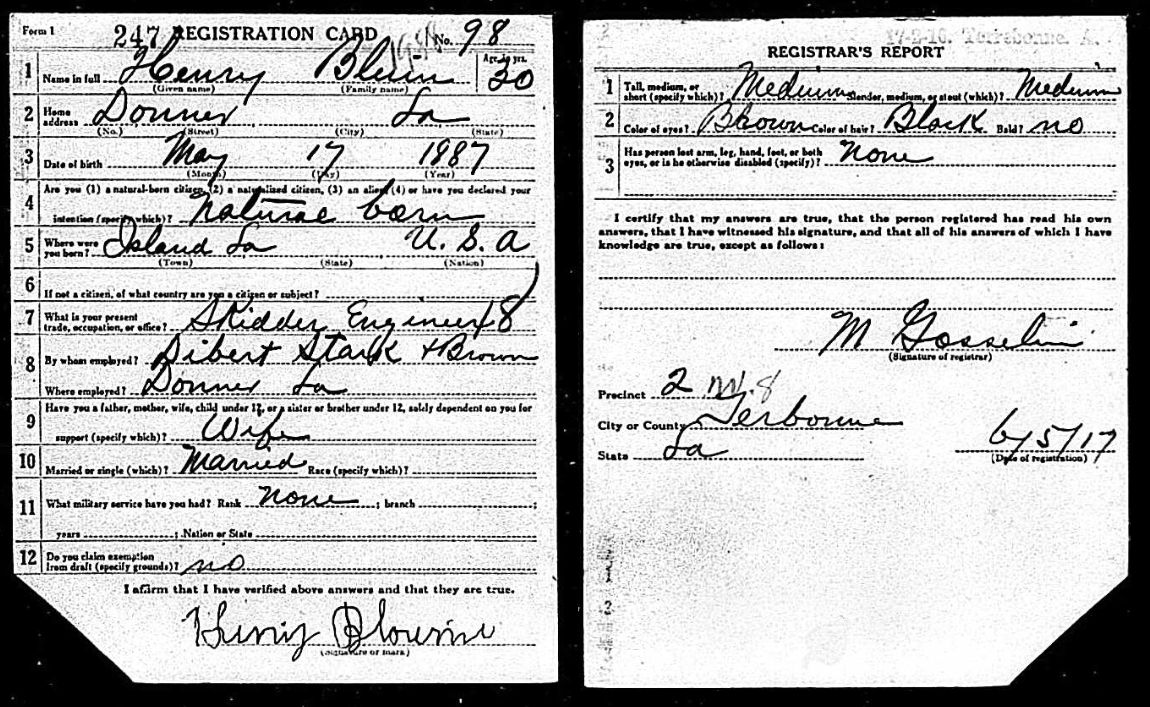 Form 1 247 REGISTRATION CARD No. 98
1 Name in full Henry Blum Age, in yrs. 30
(Given name) (Family name)
2 Home address Donner La
(No.) (Street) (City) (State)
3 Date of birth May 17 1887
(Month) (Day) (Year)
4 Are you (1) a natural-born citizen, (2) a naturalized citizen, (3) an alien, (4) or have you declared your
intention (specify which)? Natural born
5 Where were you born? Island La U. S. A
(Town) (State) (Nation)
6 If not a citizen, of what country are you a citizen or subject?
7 What is your present trade, occupation, or office? Skidder Engineer 18
8 By whom employed? Dibert Stark & Brown
Where employed? Donner La
9 Have you a father, mother, wife, child under 12, or a sister or brother under 12, solely dependent on you for
support (specify which)? Wife
10 Married or single (which)? Married Race (specify which)?
11 What military service have you had? Rank None ; branch ;
years ; Nation or State
12 Do you claim exemption from draft (specify grounds)? no
I affirm that I have verified above answers and that they are true.
Henry
(Signature or mark)
17-2-16. Terrebonne. A.
REGISTRAR'S REPORT
1 Tall, medium, or short (specify which)? Medium Slender, medium, or stout (which)? Medium
2 Color of eyes? Brown Color of hair? Black Bald? no
3 Has person lost arm, leg, hand, foot, or both eyes, or is he otherwise disabled (specify)? None
I certify that my answers are true, that the person registered has read his own
answers, that I have witnessed his signature, and that all of his answers of which I have
knowledge are true, except as follows:
M Gosselin
(Signature of registrar)
Precinct 2 W. 8
City or County Terbonne
State La 6/5/17
(Date of registration)